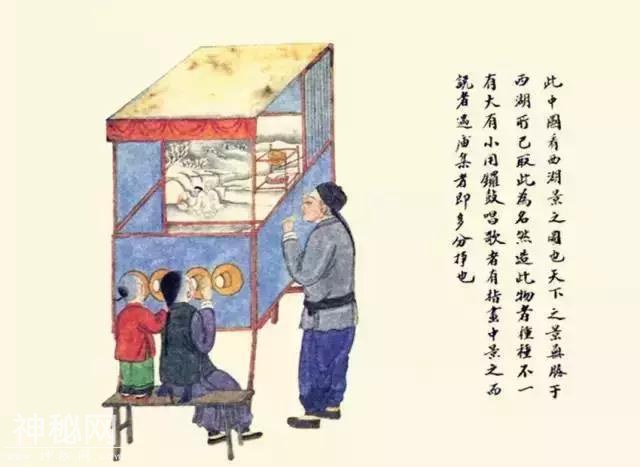 此中國看西湖景之圖也天下之景無勝于
西湖所已取此為名然造此物者種種不一
有大有小用鑼鼓唱歌者有指畫中景之而
説者遇庙集者即多分挣也
神秘网